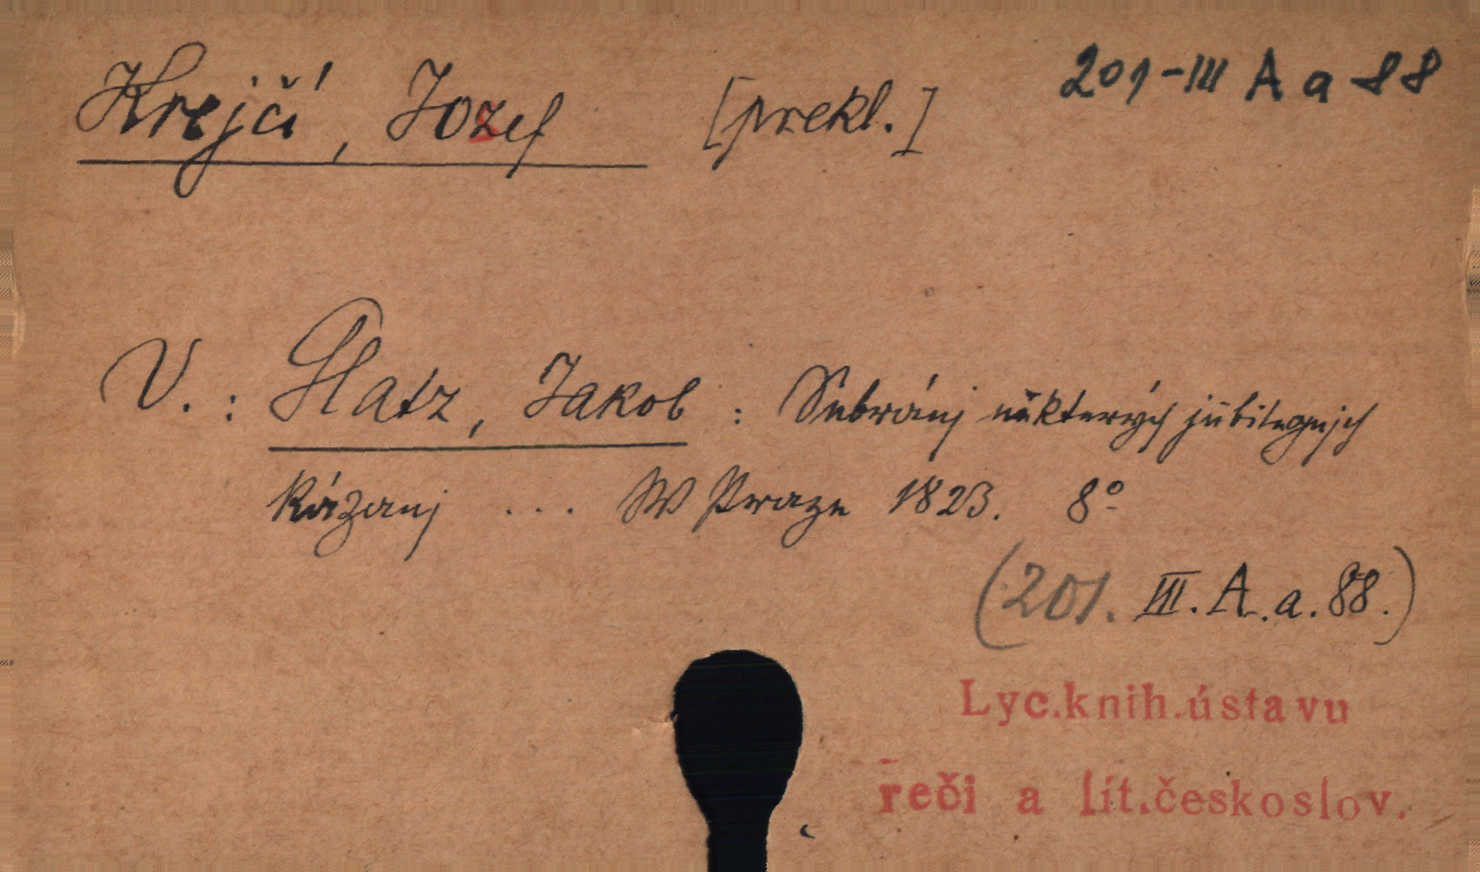 Krejčí, Jozef [prekl.] 201-III A a 88
V. : Glatz, Jakob : Sebránj některých jubilegnjch
kázanj ... W Praze 1823. 8°
(201. III. A. a. 88.)
Lyc.knih.ústavu
řeči a lit.českoslov.